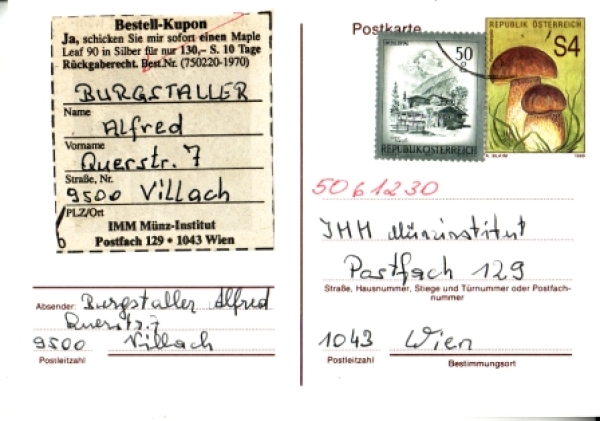 Bestell-Kupon
Ja, schicken Sie mir sofort einen Maple
Leaf 90 in Silber für nur 130,– S. 10 Tage
Rückgaberecht. Best.Nr. (750220-1970)
BURGSTALLER
Name
Alfred
Vorname
Querstr. 7
Straße, Nr.
9500 Villach
PLZ/Ort
IMM Münz-Institut
Postfach 129 • 1043 Wien
Absender: Burgstaller Alfred
Querstr. 7
9500 Villach
Postleitzahl
Postkarte
50 g
REPUBLIK ÖSTERREICH
REPUBLIK ÖSTERREICH
S4
5061230
IMM Münzinstitut
Postfach 129
Straße, Hausnummer, Stiege und Türnummer oder Postfach-
nummer
1043 Wien
Postleitzahl
Bestimmungsort